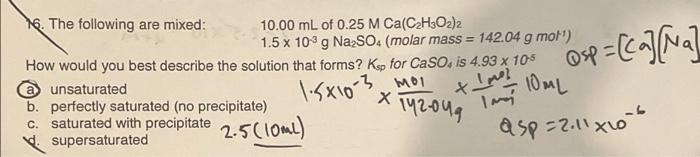 16. The following are mixed: 10.00 mL of 0.25 M Ca(C₂H₃O₂)₂
1.5 x 10⁻³ g Na₂SO₄ (molar mass = 142.04 g mol⁻¹)
How would you best describe the solution that forms? Ksp for CaSO₄ is 4.93 x 10⁻⁵
Qsp = [Ca][Na]
a. unsaturated
b. perfectly saturated (no precipitate)
c. saturated with precipitate
d. supersaturated
1.5x10⁻³ x mol/142.04g x 1 mol/1 mol ÷ 10mL
2.5(10mL)
Qsp = 2.11 x10⁻⁶